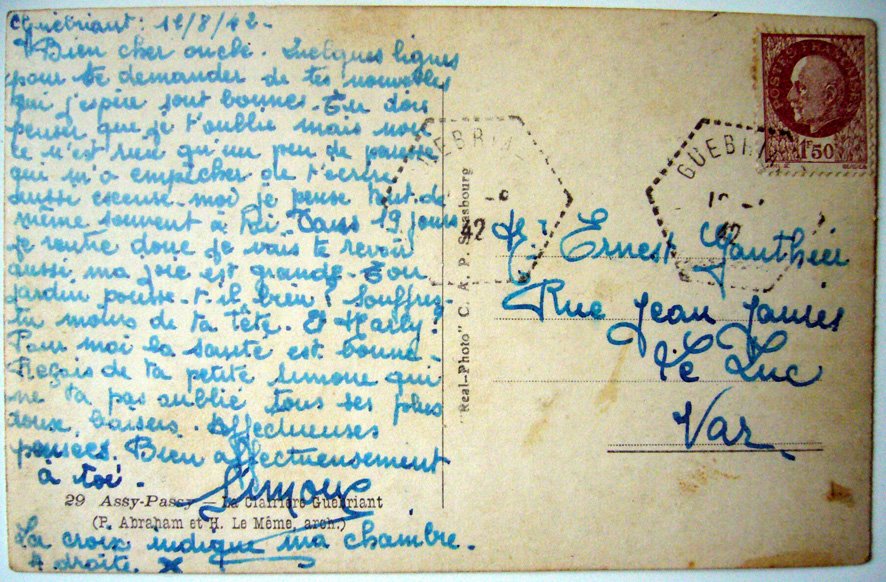 Guébriant : 12/8/42 -
Bien cher oncle. Quelques lignes
pour te demander de tes nouvelles
qui j'espère sont bonnes. Tu dois
penser que je t'oublie mais non
ce n'est rien qu'un peu de paresse
qui m'a empêcher de t'écrire
aussi excuse-moi je pense tout de
même souvent à toi. Dans 19 jours
je rentre donc je vais te revoir
aussi ma joie est grande. Ton
jardin pousse-t-il bien ? Souffres-
tu moins de ta tête. Et ?
Pour moi la santé est bonne -
Reçois de ta petite Simone qui
ne t'a pas oublié tous ses plus
doux baisers. Affectueuses
pensées. Bien affectueusement
à toi.
Simone
29 Assy-Passy — La Clairière Guébriant
(P. Abraham et H. Le Même, arch.)
La croix indique ma chambre.
A droite. x
"Real-Photo" C. A. P. Strasbourg
GUEBRIA
42
GUEBRI
42
POSTES FRANÇAISES
1F50
Mr Ernest Gauthier
Rue Jean Jaurès
Le Luc
Var